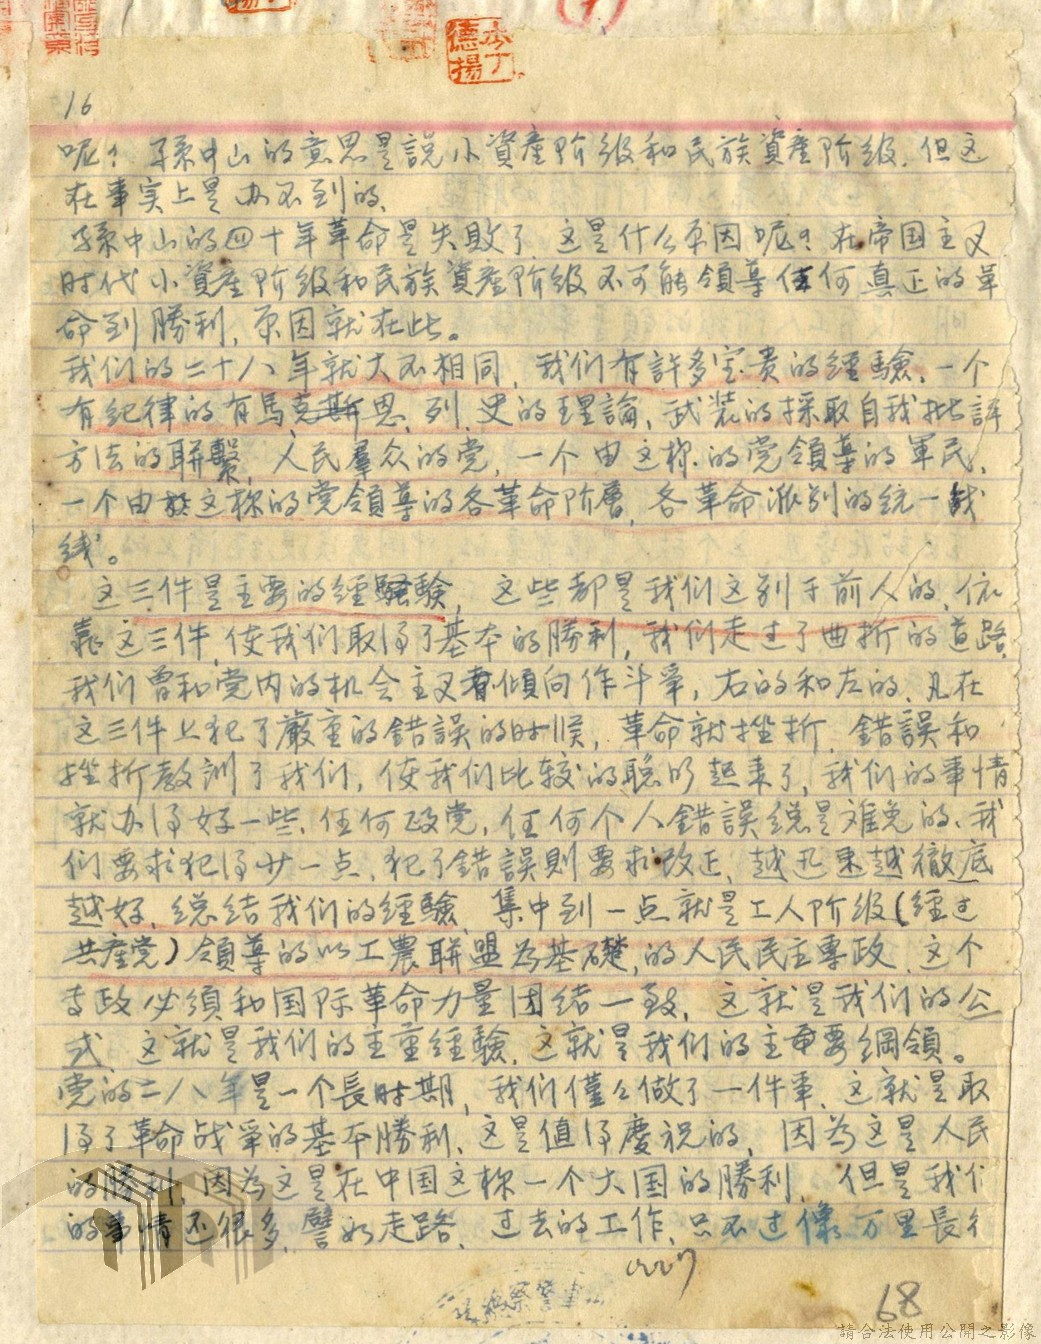 16
李丁
德揚
呢？孫中山的意思是說小資產阶级和民族資產阶级．但这
在事实上是办不到的、
孫中山的四十年革命是失敗了 这是什么原因呢？在帝国主义
时代小資產阶级和民族資產阶级不可能領導任何真正的革
命到勝利，原因就在此。
我们的二十八年就大不相同，我们有許多宝贵的經驗，一个
有纪律的有馬克斯恩、列、史的理論、武装的採取自我批評
方法的联繫，人民羣众的党，一个由这様的党領導的軍民、
一个由这様的党領導的各革命阶層，各革命派别的统一战
线。
这三件是主要的經驗，这些都是我们这别于前人的，依
靠这三件，使我们取得了基本的勝利，我们走过了曲折的道路，
我们曾和党内的机会主义傾向作斗爭，右的和左的．凡在
这三件上犯了嚴重的錯誤的时候，革命就挫折．錯誤和
挫折教訓了我们，使我们比较的聪明起来了，我们的事情
就办得好一些、任何政党，任何个人錯誤總是难免的、我
们要求犯得少一点，犯了錯誤則要求改正，越迅速越徹底
越好．總结我们的經驗、集中到一点就是工人阶级(經过
共產党)領導的以工農联盟為基礎，的人民民主專政．这个
专政必須和国际革命力量团结一致，这就是我们的公
式，这就是我们的主重經驗，这就是我们的主要綱領。
党的二八年是一个長时期，我们僅么做了一件事、这就是取
得了革命战爭的基本勝利、这是值得慶祝的，因為这是人民
的勝利，因為这是在中国这様一个大国的勝利．但是我们
的事情还很多．譬如走路、过去的工作、只不过像万里長
68
請合法使用公開之影像